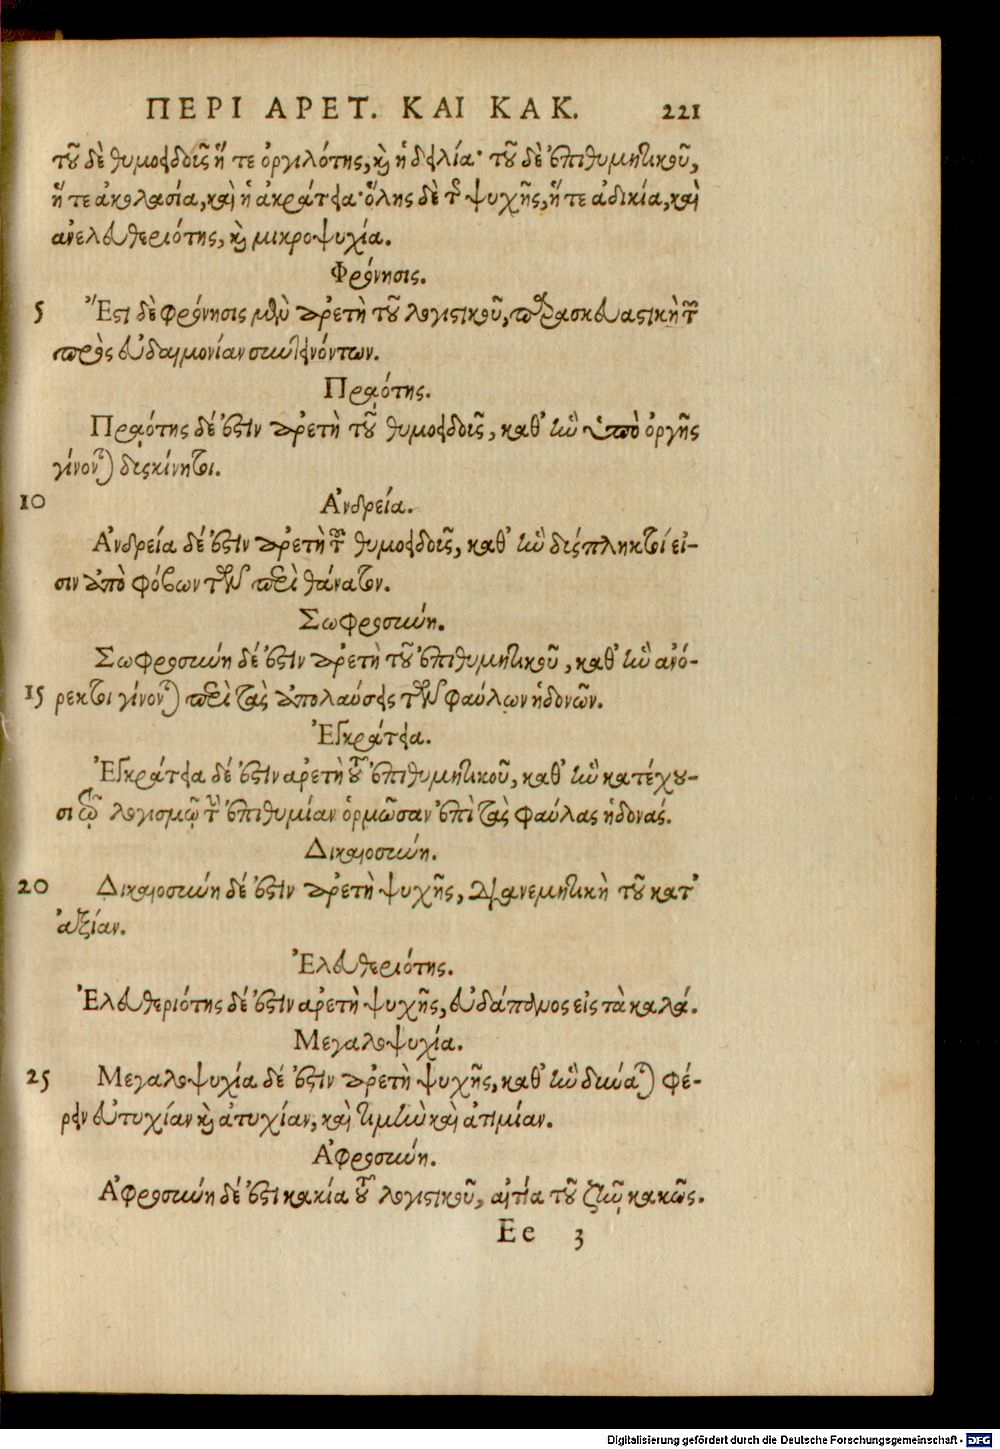 ΠΕΡΙ ΑΡΕΤ. ΚΑΙ ΚΑΚ. 221
τοῦ δὲ θυμοειδοῦς ἥ τε ὀργιλότης, καὶ ἡ δειλία· τοῦ δὲ ἐπιθυμητικοῦ,
ἥ τε ἀκολασία, καὶ ἡ ἀκράτεια· ὅλης δὲ τῆς ψυχῆς, ἥ τε ἀδικία, καὶ
ἀνελευθεριότης, καὶ μικροψυχία.
Φρόνησις.
5 Ἔστι δὲ φρόνησις μὲν ἀρετὴ τοῦ λογιστικοῦ, παρασκευαστικὴ τῶν
πρὸς εὐδαιμονίαν συντεινόντων.
Πρᾳότης.
Πρᾳότης δέ ἐστιν ἀρετὴ τοῦ θυμοειδοῦς, καθ' ἣν ὑπὸ ὀργῆς
γίνονται δυσκίνητοι.
10 Ἀνδρεία.
Ἀνδρεία δέ ἐστιν ἀρετὴ τοῦ θυμοειδοῦς, καθ' ἣν δυσέπληκτοί εἰ-
σιν ὑπὸ φόβων τῶν περὶ θάνατον.
Σωφροσύνη.
Σωφροσύνη δέ ἐστιν ἀρετὴ τοῦ ἐπιθυμητικοῦ, καθ' ἣν ἀνό-
15 ρεκτοι γίνονται περὶ τὰς ἀπολαύσεις τῶν φαύλων ἡδονῶν.
Ἐγκράτεια.
Ἐγκράτεια δέ ἐστιν ἀρετὴ τοῦ ἐπιθυμητικοῦ, καθ' ἣν κατέχου-
σι τῷ λογισμῷ τὴν ἐπιθυμίαν ὁρμῶσαν ἐπὶ τὰς φαύλας ἡδονάς.
Δικαιοσύνη.
20 Δικαιοσύνη δέ ἐστιν ἀρετὴ ψυχῆς, διανεμητικὴ τοῦ κατ'
ἀξίαν.
Ἐλευθεριότης.
Ἐλευθεριότης δέ ἐστιν ἀρετὴ ψυχῆς, εὐδάπανος εἰς τὰ καλά.
Μεγαλοψυχία.
25 Μεγαλοψυχία δέ ἐστιν ἀρετὴ ψυχῆς, καθ' ἣν δύνανται φέ-
ρειν εὐτυχίαν καὶ ἀτυχίαν, καὶ τιμὴν καὶ ἀτιμίαν.
Ἀφροσύνη.
Ἀφροσύνη δέ ἐστι κακία τοῦ λογιστικοῦ, αἰτία τοῦ ζῆν κακῶς.
Ee 3
Digitalisierung gefördert durch die Deutsche Forschungsgemeinschaft - DFG